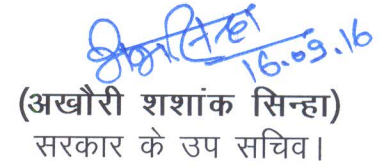 16.09.16
(अखौरी शशांक सिन्हा)
सरकार के उप सचिव।